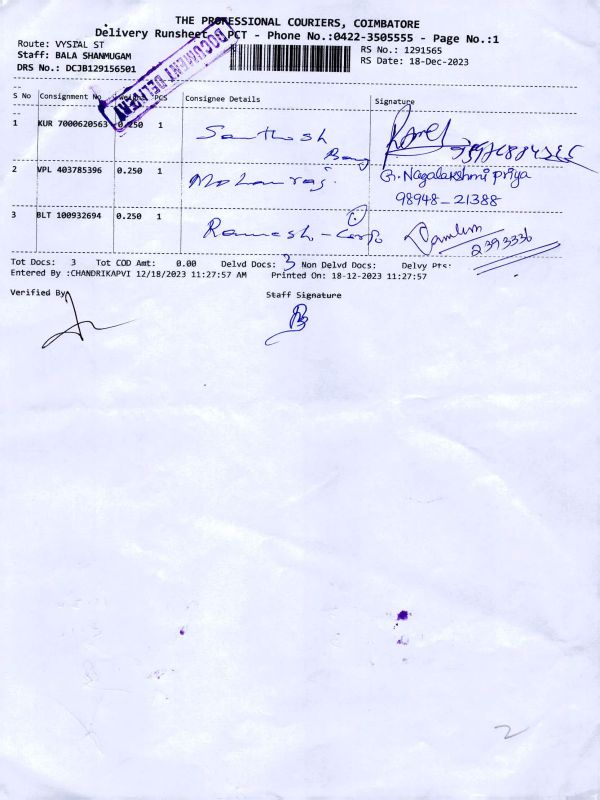 THE PROFESSIONAL COURIERS, COIMBATORE
Delivery Runsheet PCT - Phone No.:0422-3505555 - Page No.:1
Route: VYSIAL ST
RS No.: 1291565
Staff: BALA SHANMUGAM
RS Date: 18-Dec-2023
DRS No.: DCJB129156501
DOCUMENT DELIVERY
S No Consignment No PCS Consignee Details Signature
1 KUR 7000620563 0.250 1 Santhosh
2 VPL 403785396 0.250 1 Mohanraj. G. Nagalakshmi Priya
98948-21388
3 BLT 100932694 0.250 1 Ramesh - Corp
2393336
Tot Docs: 3 Tot COD Amt: 0.00 Delvd Docs: 3 Non Delvd Docs: Delvy Pts:
Entered By :CHANDRIKAPVI 12/18/2023 11:27:57 AM Printed On: 18-12-2023 11:27:57
Verified By
Staff Signature
2